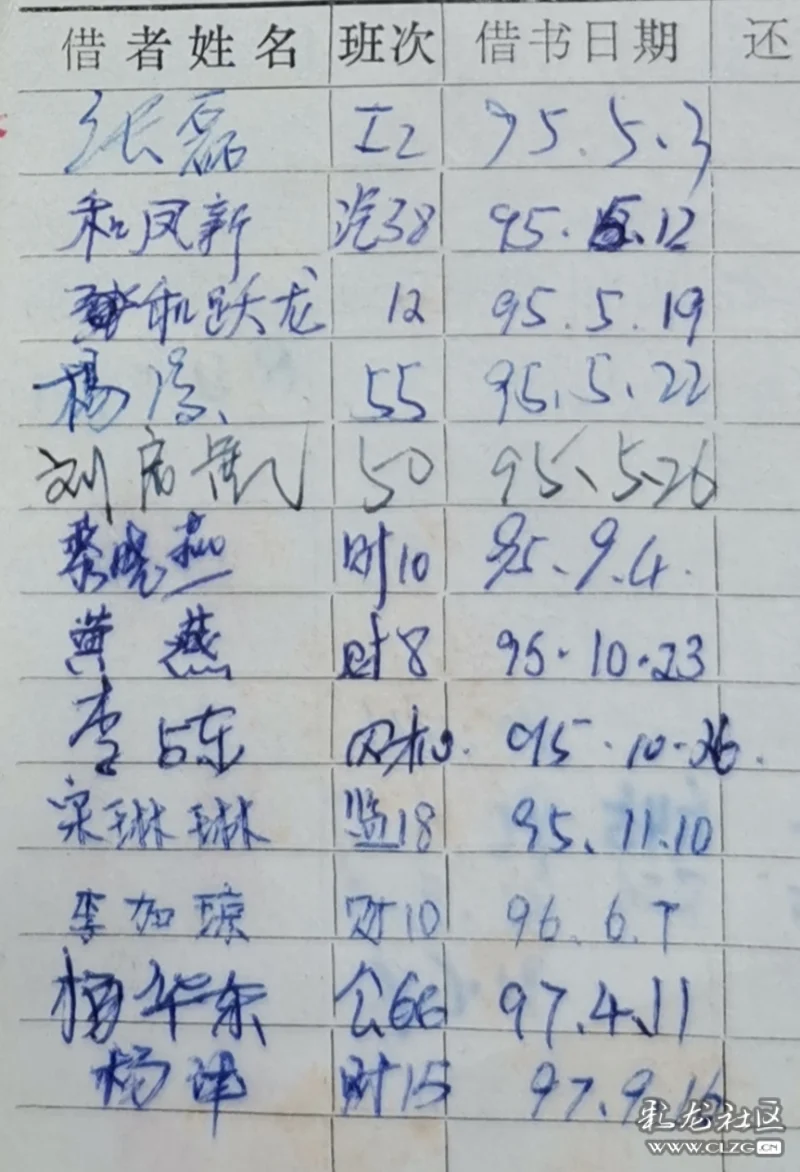 借者姓名 班次 借书日期 还
张磊 工2 95.5.3
和凤新 汽38 95.5.12
和跃龙 12 95.5.19
杨 55 95.5.22
刘 50 95.5.26
晓燕 财10 95.9.4.
黄燕 财8 95.10.23
李占东 95.10.26.
宋琳琳 监18 95.11.10
李加琼 财10 96.6.7
杨华东 公66 97.4.11
杨 财15 97.9.16
彩龙社区
WWW.CLZG.CN